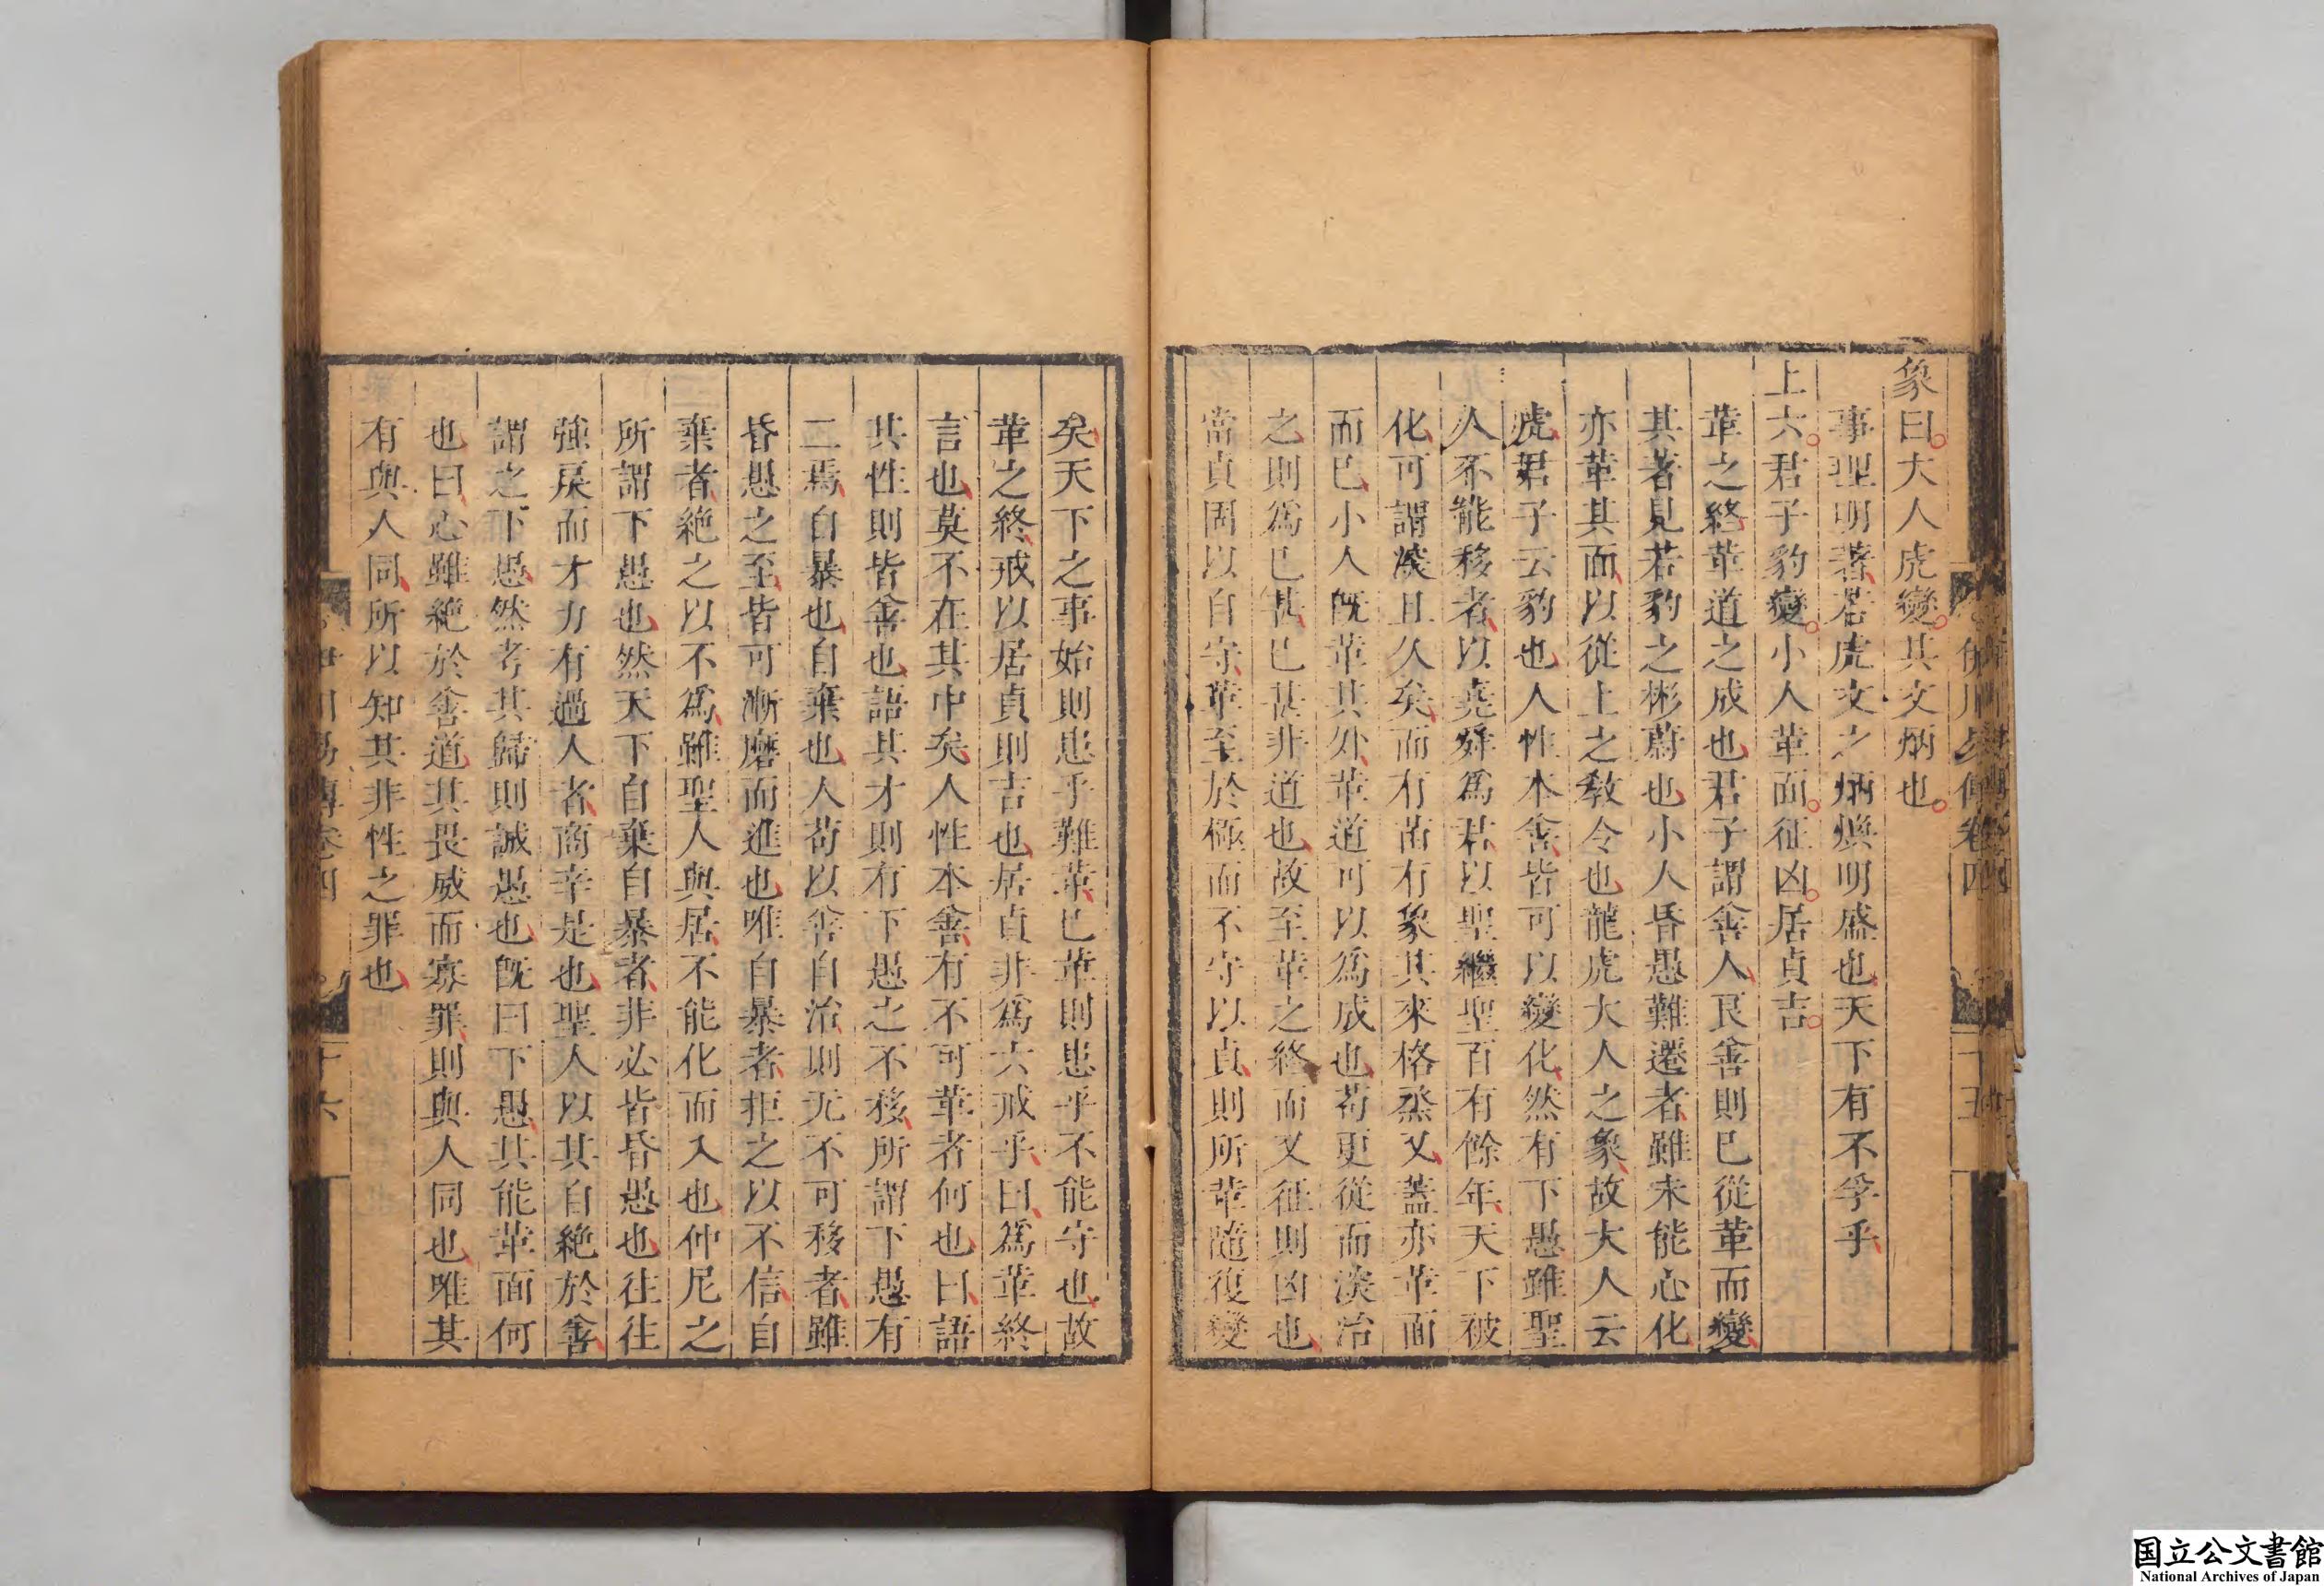 象曰大人虎變其文炳也
事理明著若虎文之炳煥明盛也天下有不孚乎
上六君子豹變小人革面征凶居貞吉
革之終革道之成也君子謂善人良善則已從革而變
其著見若豹之彬蔚也小人昏愚難遷者雖未能心化
亦革其面以從上之敎令也龍虎大人之象故大人云
虎君子云豹也人性本善皆可以變化然有下愚雖聖
人不能移者以堯舜爲君以聖繼聖百有餘年天下被
化可謂深且久矣而有苗有象其來格烝乂蓋亦革面
而已小人旣革其外革道可以爲成也苟更從而深治
之則爲已甚已甚非道也故至革之終而又征則凶也
當貞固以自守革至於極而不守以貞則所革隨復變
伊川易傳卷四
十五
矣天下之事始則患乎難革已革則患乎不能守也故
革之終戒以居貞則吉也居貞非爲六戒乎曰爲革終
言也莫不在其中矣人性本善有不可革者何也曰語
其性則皆善也語其才則有下愚之不移所謂下愚有
二焉自暴也自棄也人苟以善自治則无不可移者雖
昏愚之至皆可漸磨而進也唯自暴者拒之以不信自
棄者絕之以不爲雖聖人與居不能化而入也仲尼之
所謂下愚也然天下自棄自暴者非必皆昏愚也往往
強戾而才力有過人者商辛是也聖人以其自絕於善
謂之下愚然考其歸則誠愚也旣曰下愚其能革面何
也曰心雖絕於善道其畏威而寡罪則與人同也唯其
有與人同所以知其非性之罪也
伊川易傳卷四
十六
国立公文書館
National Archives of Japan